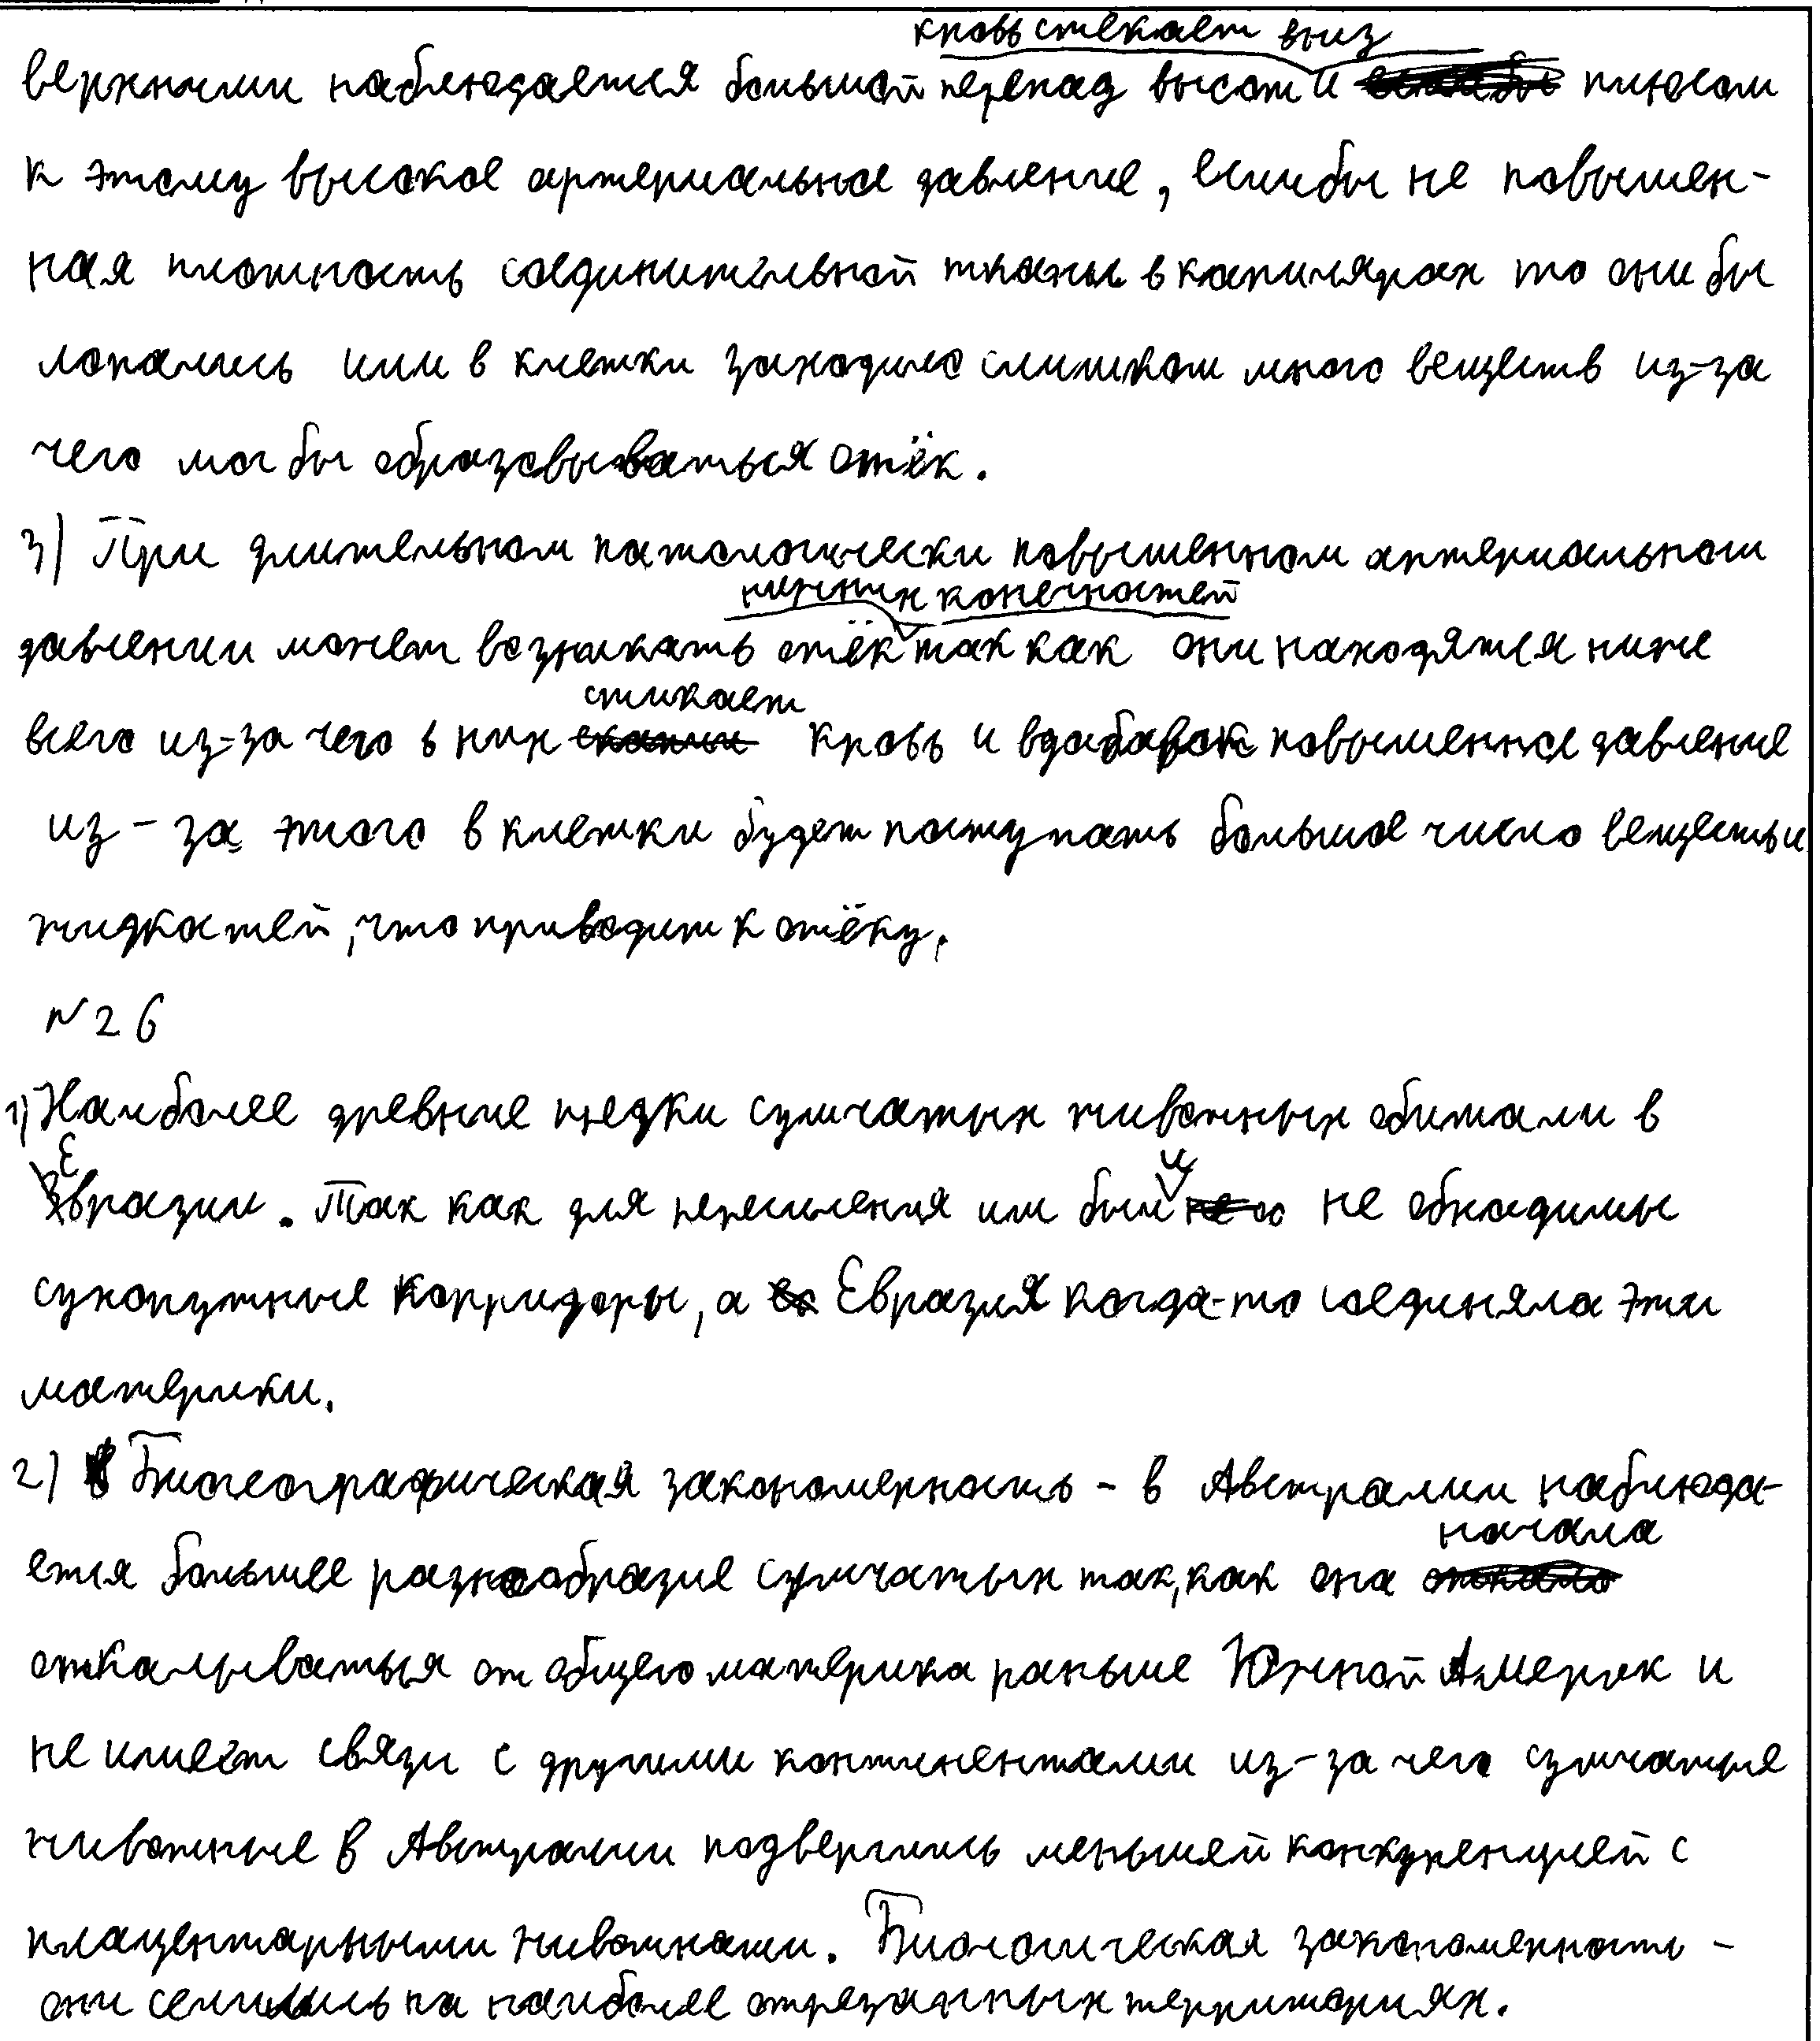 кровь стекает вниз
верхними наблюдается большой перепад высот и плюсом
к этому высокое артериальное давление, если бы не повышен-
ная плотность соединительной ткани в капилярах то они бы
лопались или в клетки заходило слишком много веществ из-за
чего мог бы образовываться отёк.
3) При длительном патологически повышенном артериальном
нижних конечностей
давлении может возникать отёк так как они находятся ниже
стикает
всего из-за чего в них кровь и вдобавок повышенное давление
из-за этого в клетки будет поступать большое число веществ и
жидкостей, что приводит к отёку.
№26
1) Наиболее древние предки сумчатых животных обитали в
Евразии. Так как для переселения им были не обходимы
сухопутные корридоры, а Евразия когда-то соединяла эти
материки.
2) Биогеографическая закономерность - в Австралии наблюда-
начала
ется большее разнообразие сумчатых так, как она
откалываться от общего материка раньше Южной Америк и
не имеет связи с другими континентами из-за чего сумчатые
животные в Австралии подверглись меньшей конкуренцией с
плацентарными животными. Биологическая закономерность -
они селились на наиболее отрезанных территориях.